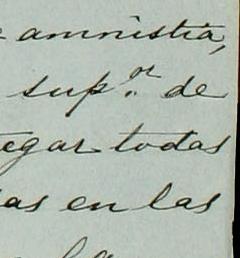 amnistia,
sup.or de
egar todas
as en las